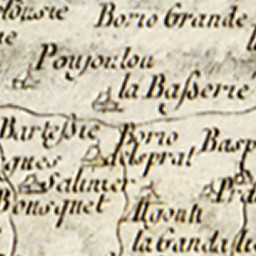 Borio Grande
Poujoulou
la Basserie
Bartessie
Borio
delsprat
Basp
gues
Salinier
Bousquet
Agouli
la Ganda